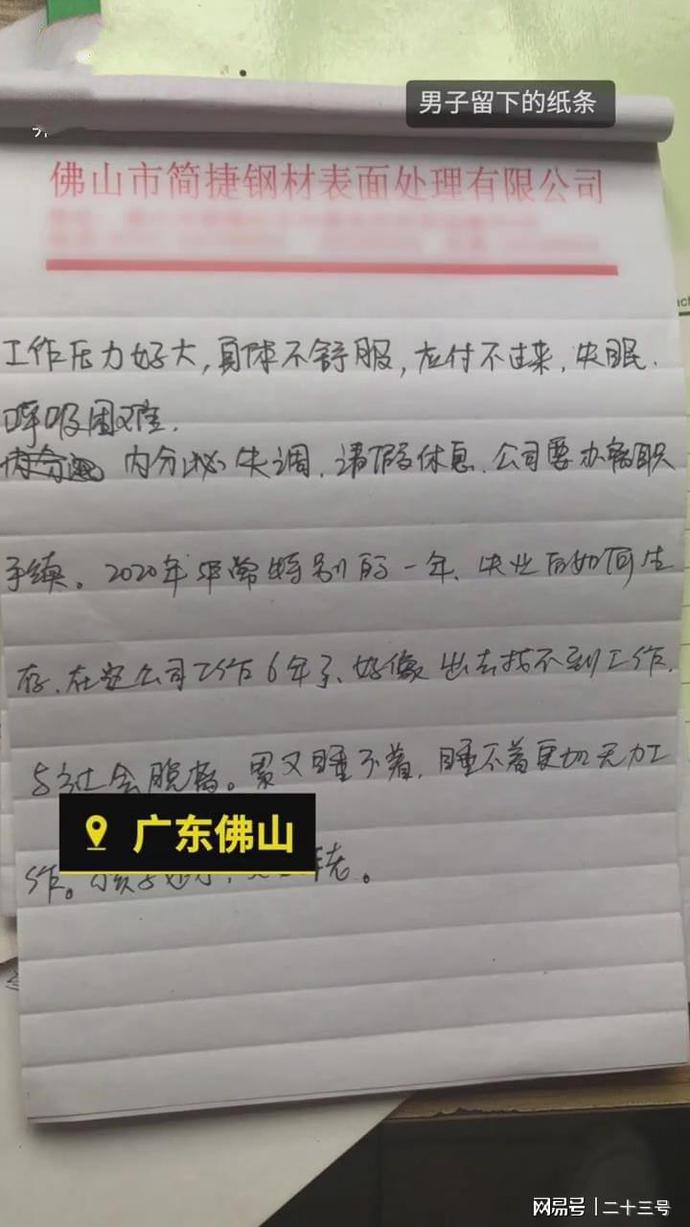 男子留下的纸条
佛山市简捷钢材表面处理有限公司
工作压力好大,身体不舒服,应付不过来,失眠.
呼吸困难.
内分泌 内分泌失调.请假休息.公司要办离职
手续。2020年非常特别的一年.失业后如何生
存.在这公司工作6年了、好像出去找不到工作.
与社会脱离。累又睡不着.睡不着更加无力工
作。
广东佛山
网易号 | 二十三号